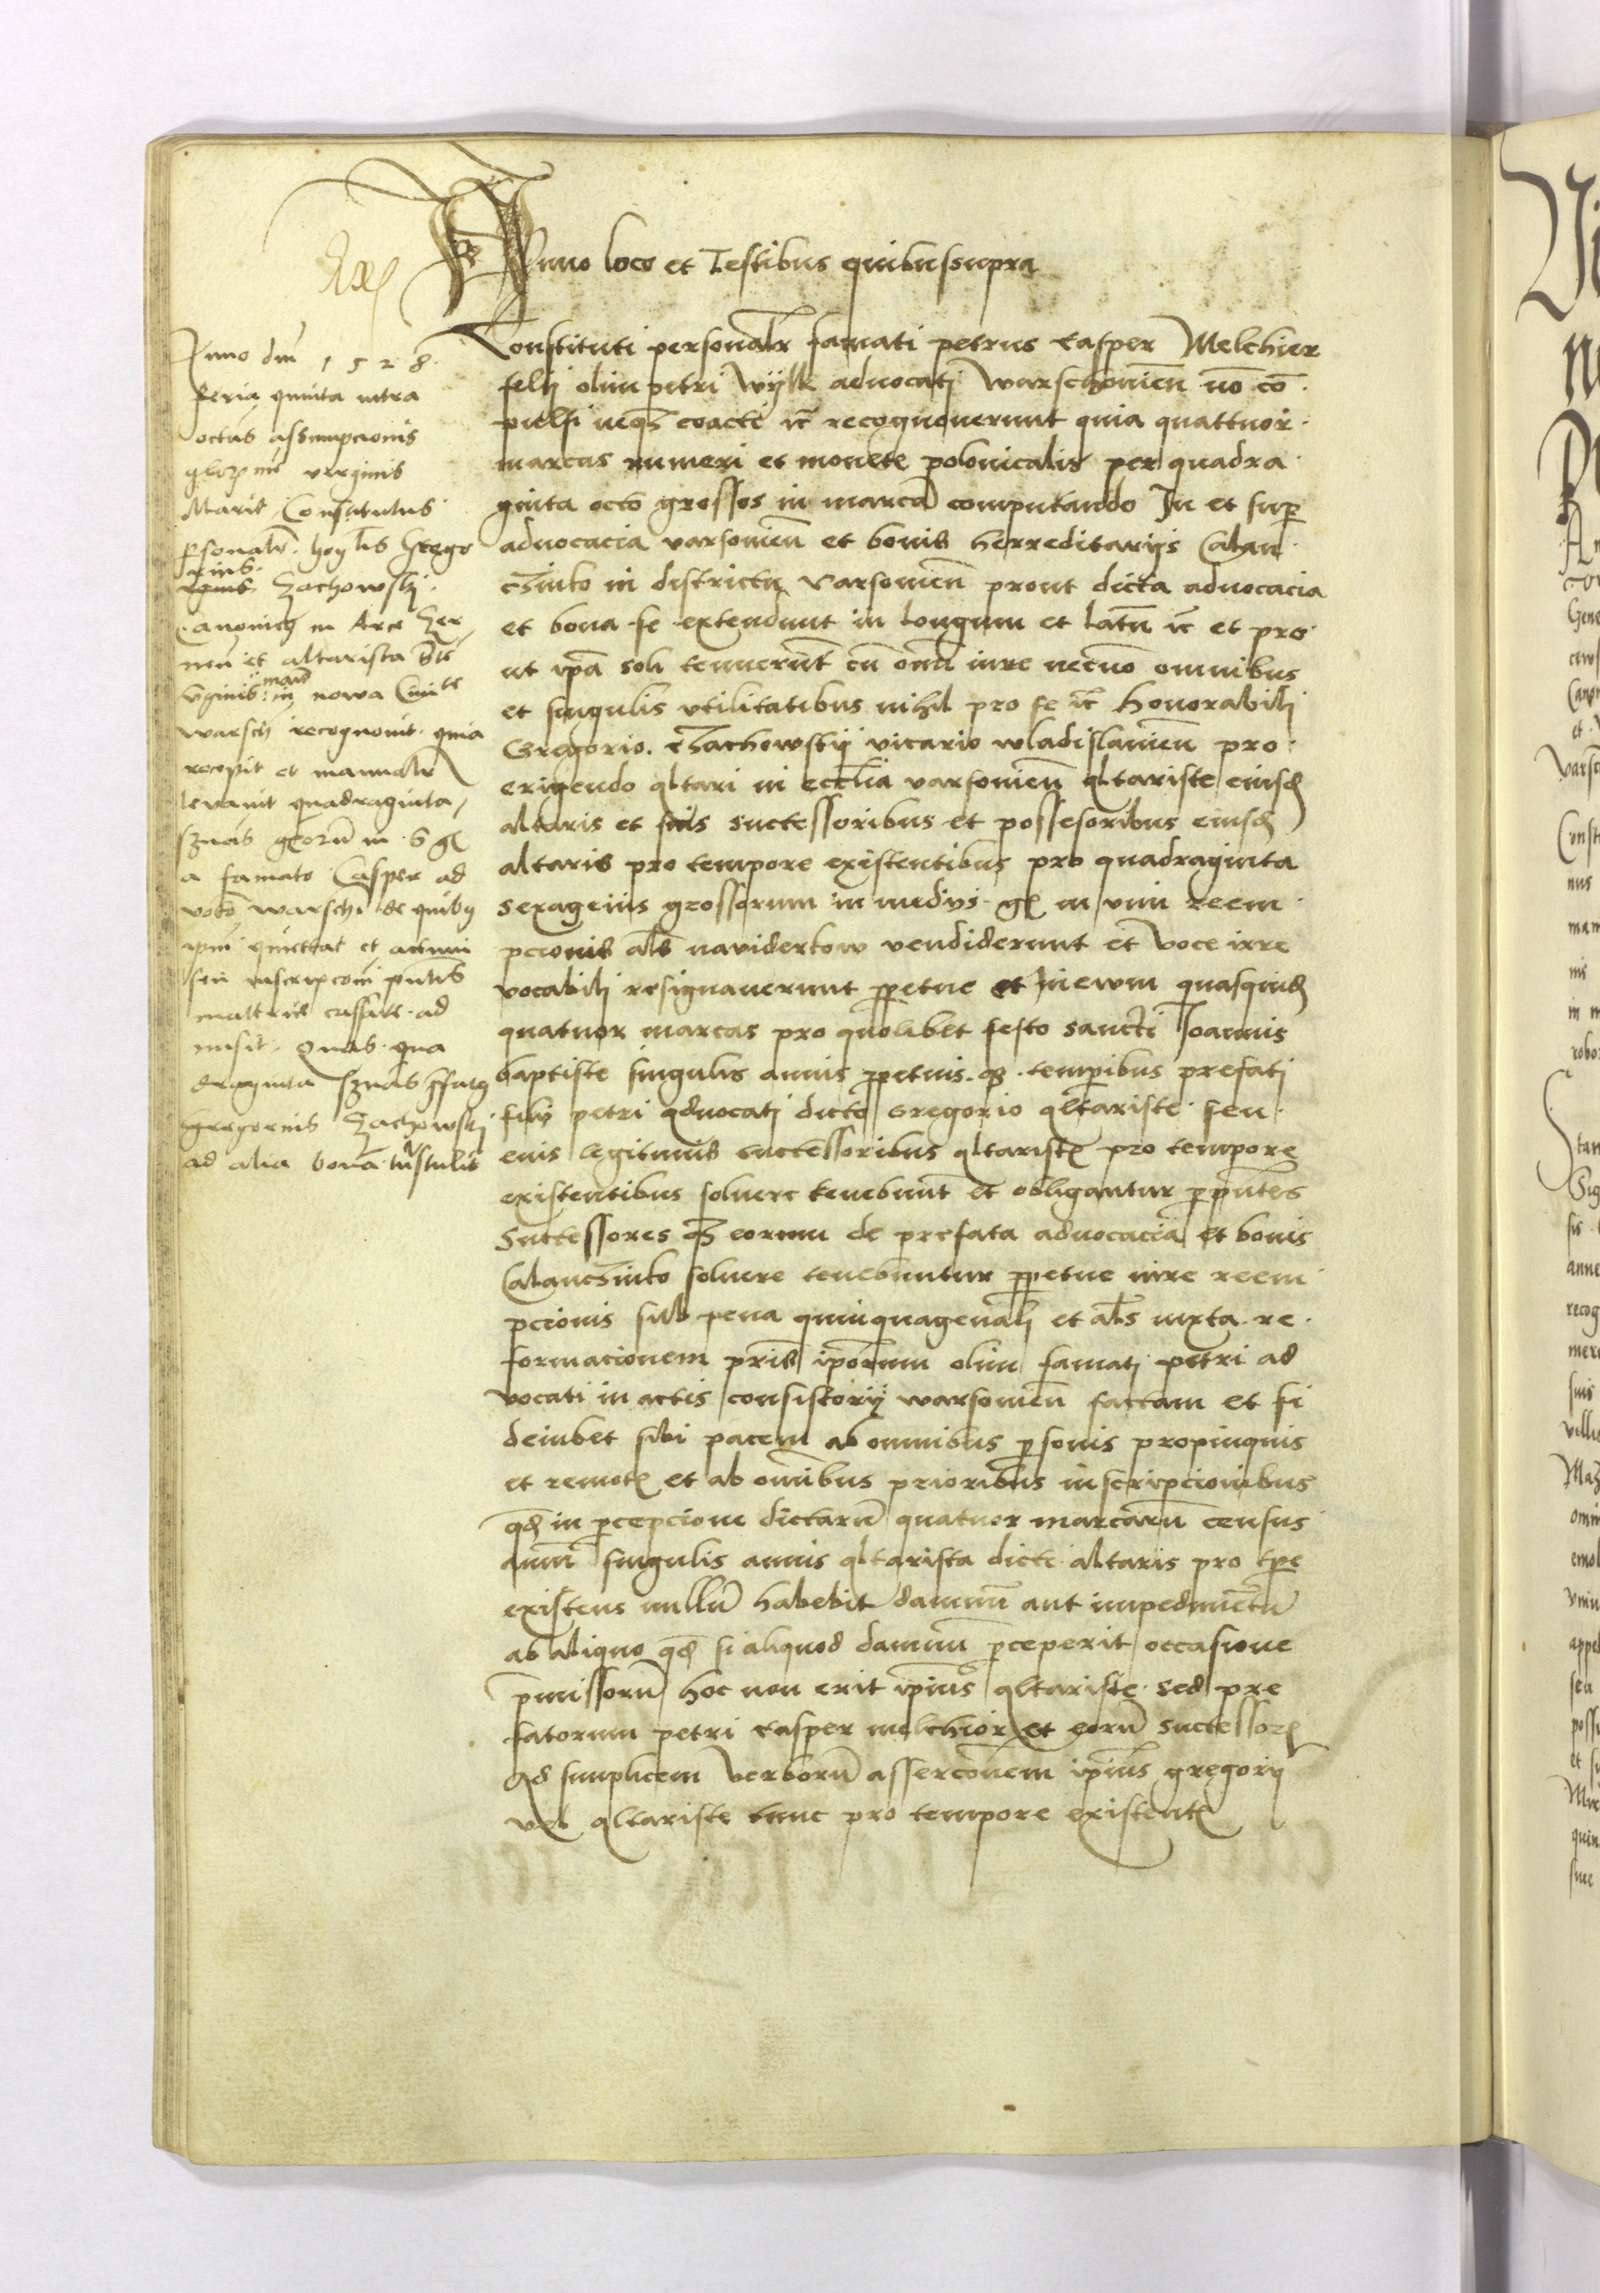 Anno loco et Testibus quibussupra
Constituti personalr famati petrus Casper Melchier
felij olim petri Wylk aduocatj warschouien no co
pulsi neqz coacti et recognouerunt quia quattuor
marcas numeri et monete polonicalis per quadra
ginta octo grossos in marca computando In et sup
aduocacia varsouien et bonis herreditarijs Calan
czinko in districtu Varsouien prout dicta aduocacia
et bona se extendunt in longum et latu et pro
ut ipa soli tenuerunt cu omi iure necno omnibus
et singulis vtilitatibus nihil pro se Honorabili
Gregorio Zachowskij vicario wladislauien pro
erigendo altari in ecclia varsouien altariste eiusd
altaris et suis successoribus et possesoribus eiusd
altaris pro tempore existentibus pro quadraginta
sexagenis grossorum in medijs gl in vim reem
pcionis als navidertow vendiderunt et voce irre
vocabili resignauerunt ppetue et in ewm quasquid
quatuor marcas pro quolibet festo sancti Joannis
baptiste singulis annis ppetuis temporibus prefati
filij petri aduocati dicto Gregorio altariste seu
euis legitimis successoribus altarist pro tempore
existentibus soluere tenebunt et obligantur pprntes
Successores qz eorum de prefata aduocacia et bonis
Calanczinko soluere tenebuntur ppetue iure reem
pcionis sub pena quinquagenalj et als iuxta re
formacionem pris iporum olim famatj petri ad
vocati in actis consistorij warsouien factam et fi
deiubet sibi pacem ab omnibus psonis propinquis
et remot et ab omibus prioribus inscripcionibus
qd in pcepcione dictaru quatuor marcaru census
annui singulis annis altarista dicte altaris pro tpe
existens nullu habebit damnu aut impedimetu
ab aliquo qd si aliquod damnu pceperit occasione
pmissoru hoc non erit ipius altariste sed pre
fatorum petri Casper melchior et eoru successor
Ad simplicem verboru assercoem ipius gregorij
vel altariste tunc pro tempore existent
Anno dni 1528
feria quinta intra
octas assumpcionis
virginis
Marie Constitutus
psonalr Grego
rius Zachowskj
Canonicus in Arce Zer
nen et altarista
vginis in nowa Ciuite
warsch recognouit quia
recepit et manualr
leuauit quadraginta
a famato Casper ad
warschi de quibus
ipm quietat et
seu inscripcom
cassare ad
misit Quas qua
draginta
Gregorius Zachowskj
ad alia bona trstulit